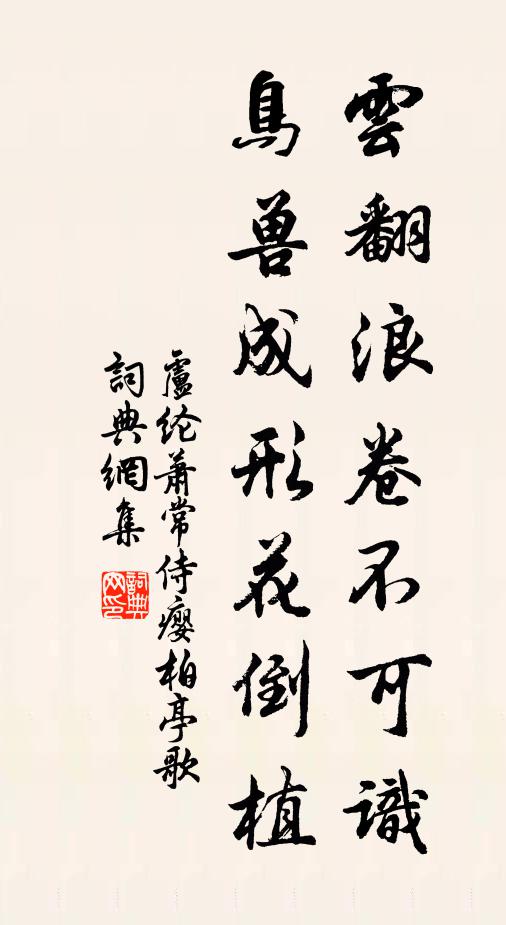 雲翻浪卷不可識
鳥兽成形花倒植
盧纶萧常侍瘿柏亭歌
詞典網集
詞典網印